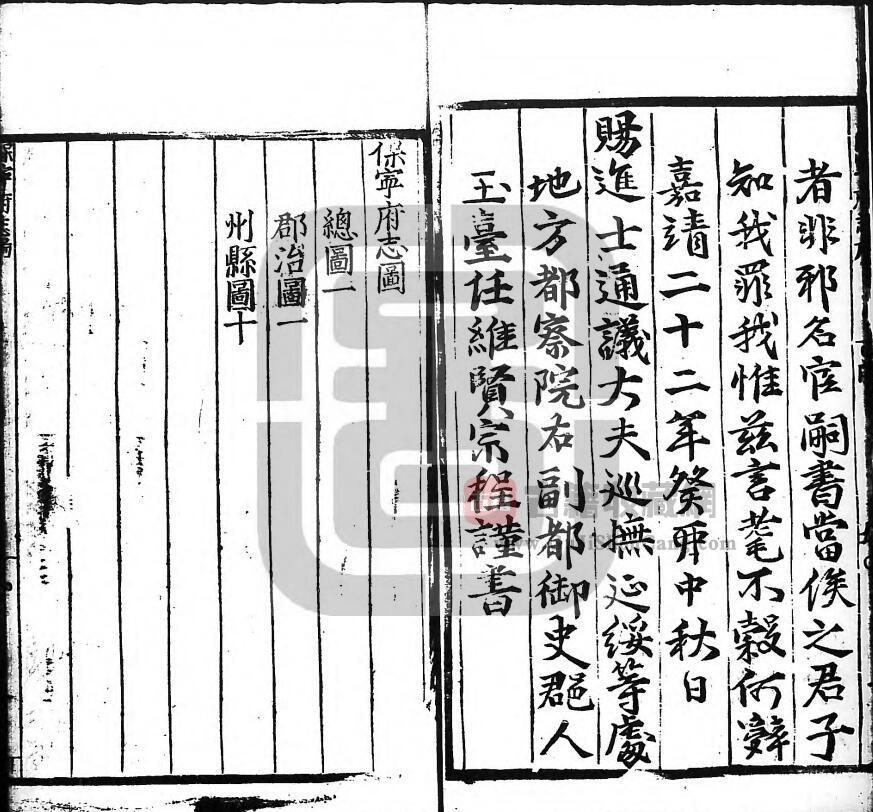 者非邪名宦嗣書當俟之君子
知我罪我惟兹言耄不穀何辭
嘉靖二十二年癸卯中秋日
賜進士通議大夫巡撫延綏等處
地方都察院右副都御史郡人
玉臺任維賢宗程謹書
保寧府志圖
總圖一
郡治圖一
州縣圖十